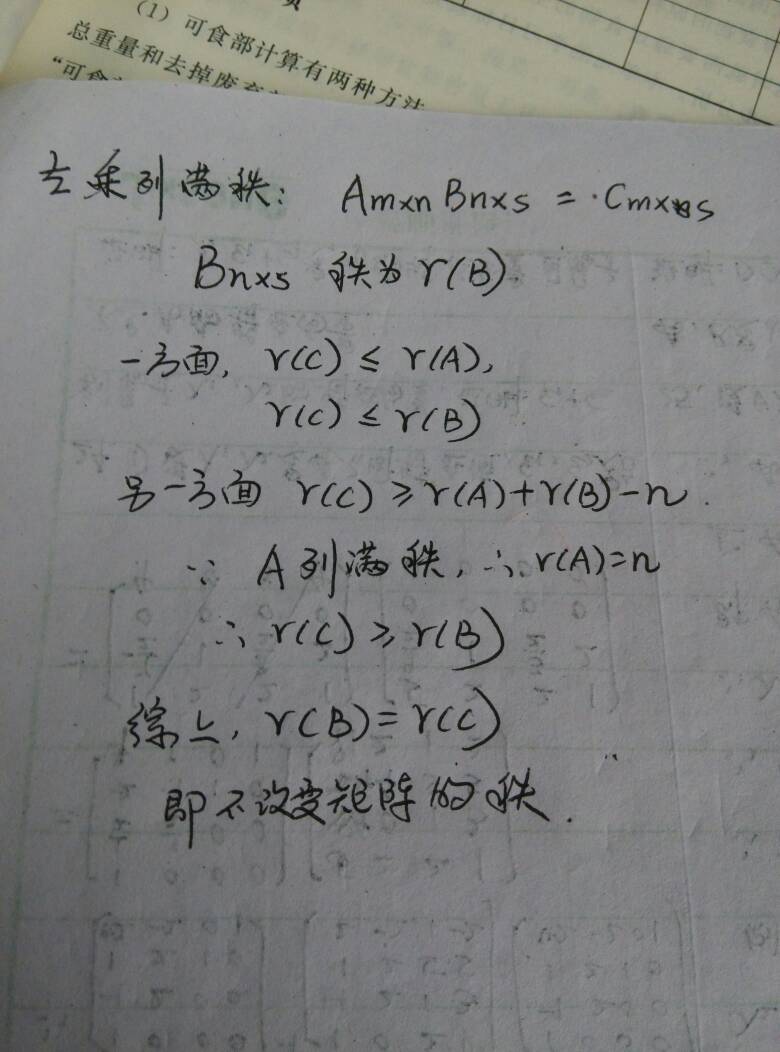 (1) 可食部计算有两种方法
总重量和去掉废弃
“可食
左乘列满秩: Am×n Bn×s = Cm×s
Bn×s 秩为 r(B)
一方面, r(C) ≤ r(A),
r(C) ≤ r(B)
另一方面 r(C) ≥ r(A)+r(B)-n.
∵ A列满秩, ∴ r(A)=n
∴ r(C) ≥ r(B)
综上, r(B)=r(C)
即不改变矩阵的秩.